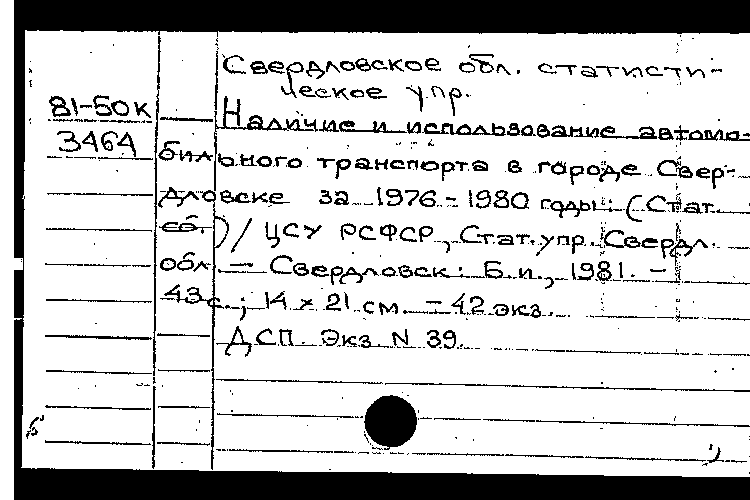 Свердловское обл. статисти-
ческое упр.
81-50к
3464
Наличие и использование автомо-
бильного транспорта в городе Свер-
дловске за 1976-1980 годы: (Стат.
сб.) / ЦСУ РСФСР, Стат. упр. Свердл.
обл. – Свердловск: Б.и., 1981. –
43 с.; 14 х 21 см. – 42 экз.
ДСП. Экз. N 39.